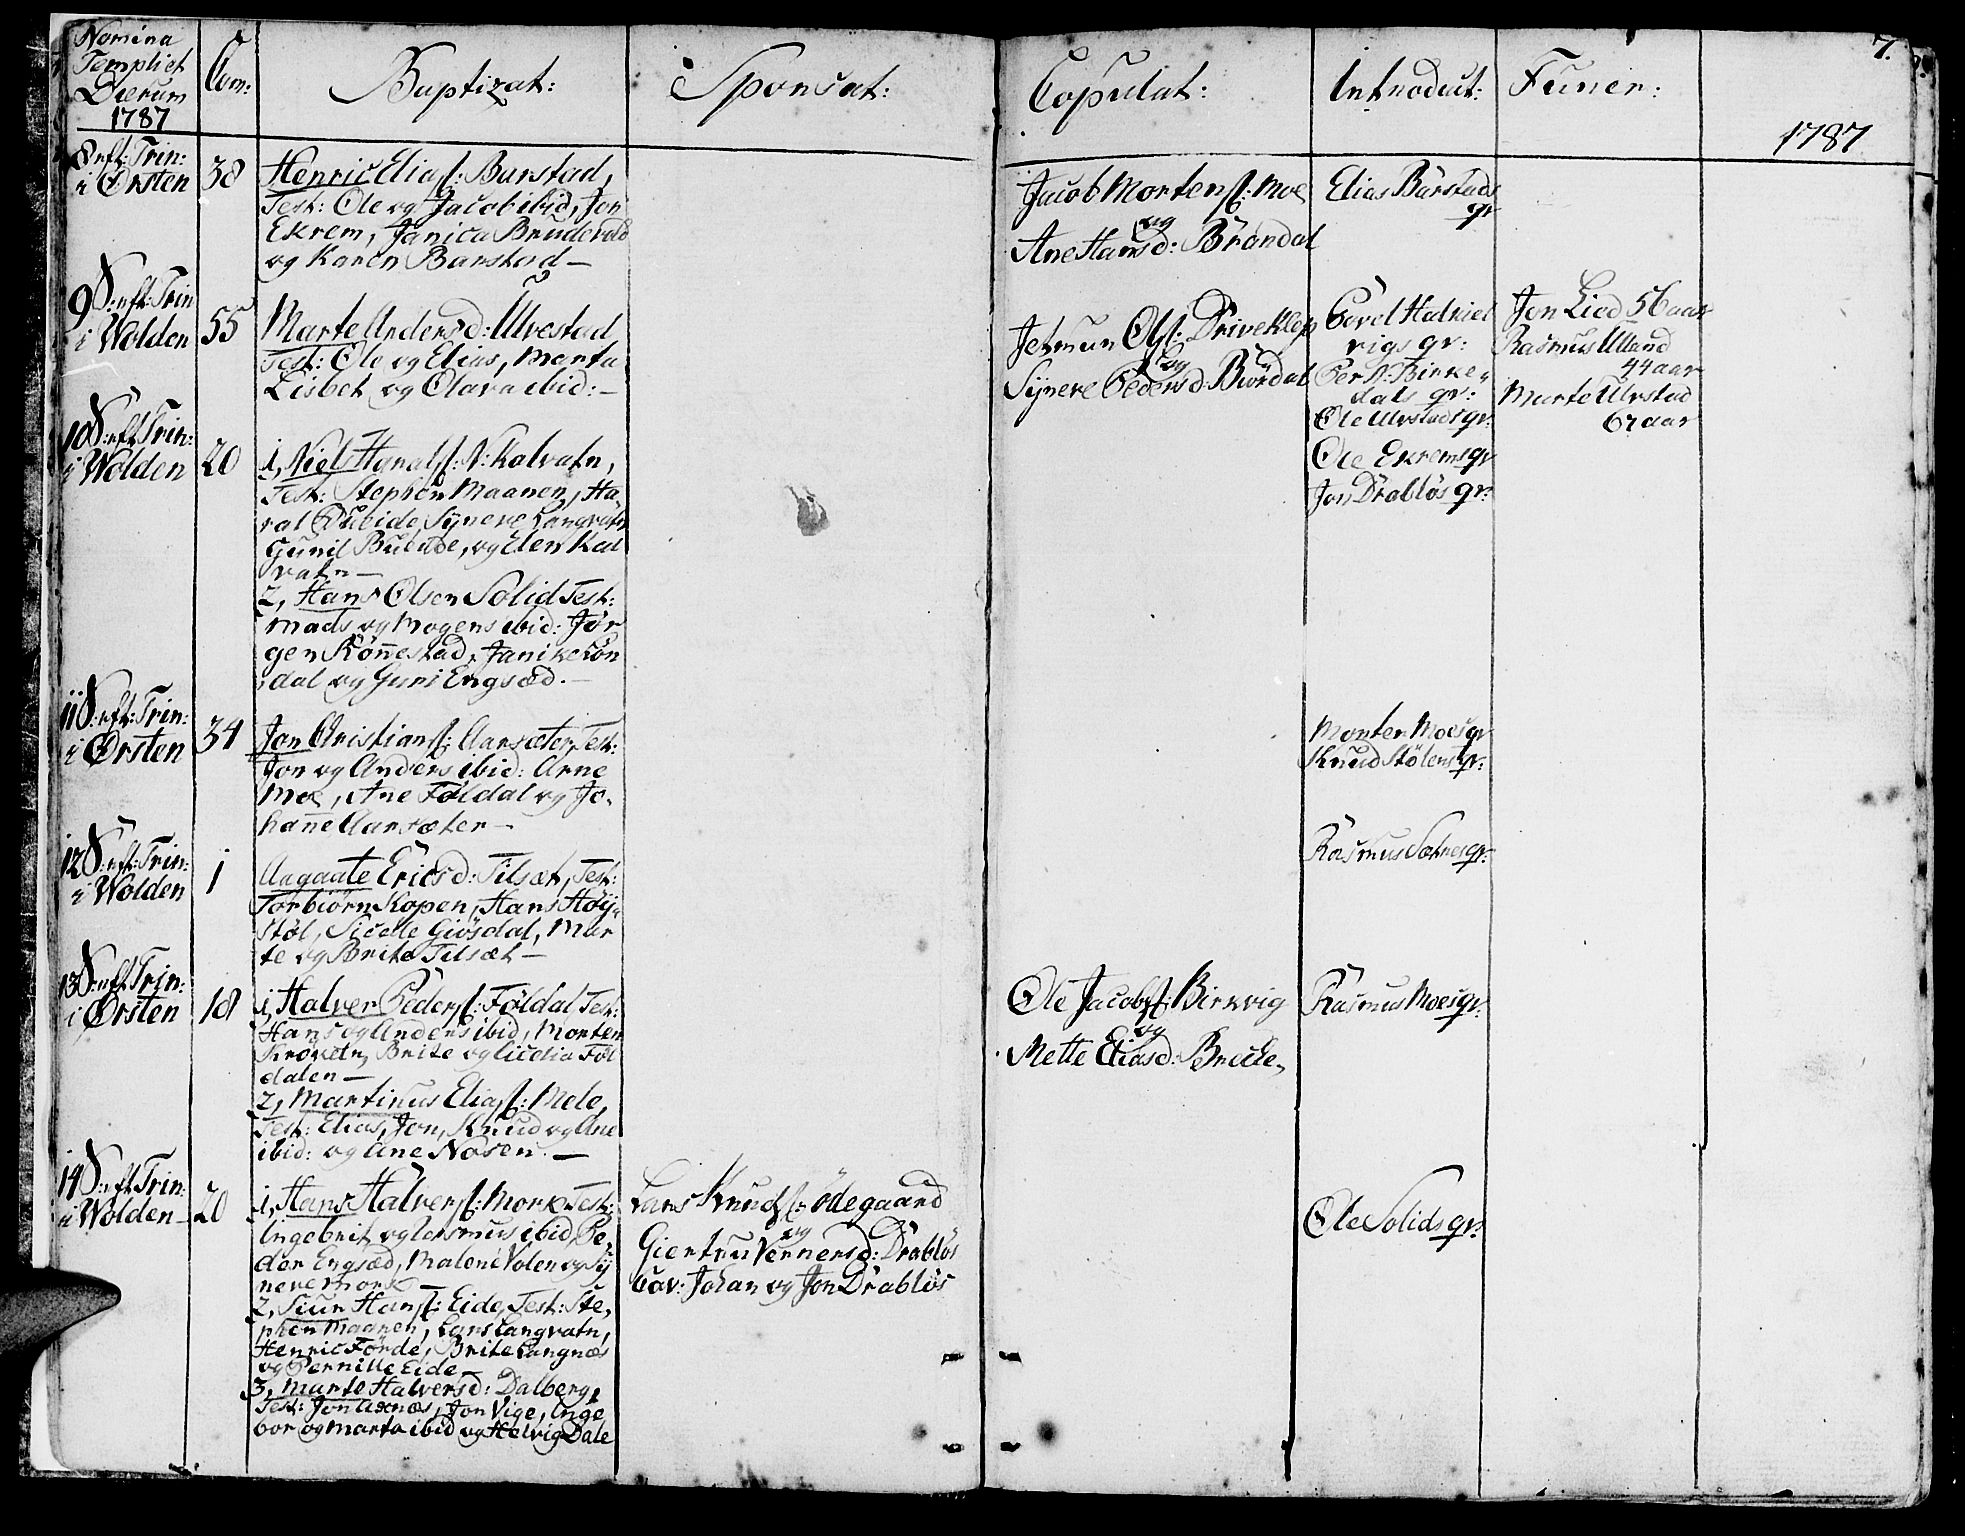 Nomina
Templi et
Dierum
1787
Com:
Baptizat:
Sponsat:
Copulat:
Introduct:
Funer:
7.
1787
8 eft: Trin:
i Ørsten
38
Henric Elias S: Barstad,
Test: Ole og Jacob ibid, Jon
Ekrem, Janica Brudevold
og Karen Barstad —
Jacob Mortens S: Moe
og
Ane Hansd: Brandal
Elias Barstads
gr
9 S: eft: Trin
i Wolden
55
Marte Andersd: Ulvestad
Test: Ole og Elias, Marta
Lisbet og Olava ibid: —
Jetmun Ols S: Driveklep
og
Syneve Pedersd: Biørdal
rigs gr:
Per N: Birke„
dals gr:
Ole Ulvstads gr:
Ole Ekrems gr
Jon Drabløs gr:
Jon Lied 56 aar
Rasmus Ulland
44 aar
Marte Ulvstad
67 aar
10 S: eft Trin:
i Wolden
20
1, Niels Haral S: N: Kalvatn,
Test: Stephen Maanen, Ha„
ral Øubide, Syneve Langvatn
Gunil Bubide, og Elen Kal
vatn —
2, Hans Olsen Solid Test:
Mads og Mogens ibid: Jør
gen Rønnestad, Janike Løn
dal og Guri Engsæd. —
11 S: eft: Trin:
i Ørsten
34
Jon Christian S: Aarsæter, Test:
Jon og Anders ibid: Arne
Moe, Ane Føldal og Jo„
hanne Aarsæter —
Morten Moes gr
Knud Stølens gr:
12 S: eft: Trin:
i Wolden
1
Aagaate Ericsd: Tilsæt, Test:
Torbiørn Kopen, Hans Høy„
støl, Sicele Giøsdal, Mar
te og Brite Tilsæt —
Rasmus Sætres gr:
13 S: eft Trin:
i Ørsten
18
1, Halver Peders S: Føldal Test:
Hans og Anders ibid, Morten
Krovatn, Brite og Licelia Føl
dalen —
2, Martinus Elias S: Mele,
Test: Elias, Jon, Knud og Ane
ibid: og Ane Nosen. —
Ole Jacobs S: Birkvig
og
Mette Eliasd: Brecke,
Rasmus Moes gr:
14 S: eft Trin:
i Wolden —
20
1, Hans Halvers S: Mork Test:
Ingebrit og Rasmus ibid, Pe„
der Engsæd, Malene Volen og Sy
neve Mork —
2, Siur Hans S: Eide, Test: Ste„
phen Maanen, Lars Langvatn,
Henric Førde, Brite Langnæs
og Pernille Eide
3, Marte Halversd: Dalberg,
Test: Jon Aasnæs, Jon Vige, Inge
bor og Marta ibid og Helvig Dale
Lars Knuds S: Ødegaard
og
Giertru Vernersd: Drabløs
Cav: Johan og Jon Drabløs
Ole Solids gr: